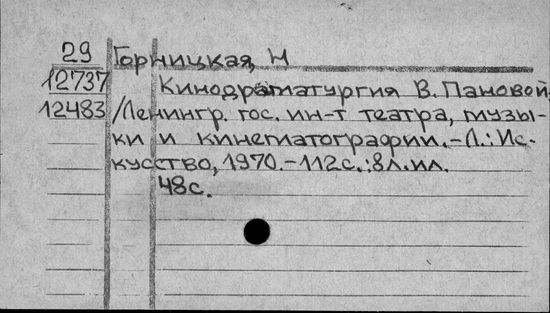 29 Горницкая, Н
12737 Кинодраматургия В. Пановой.
12483 /Ленингр. гос. ин-т театра, музы-
ки и кинематографии.-Л.: Ис-
кусство, 1970.-112с.:8л.ил.
48с.